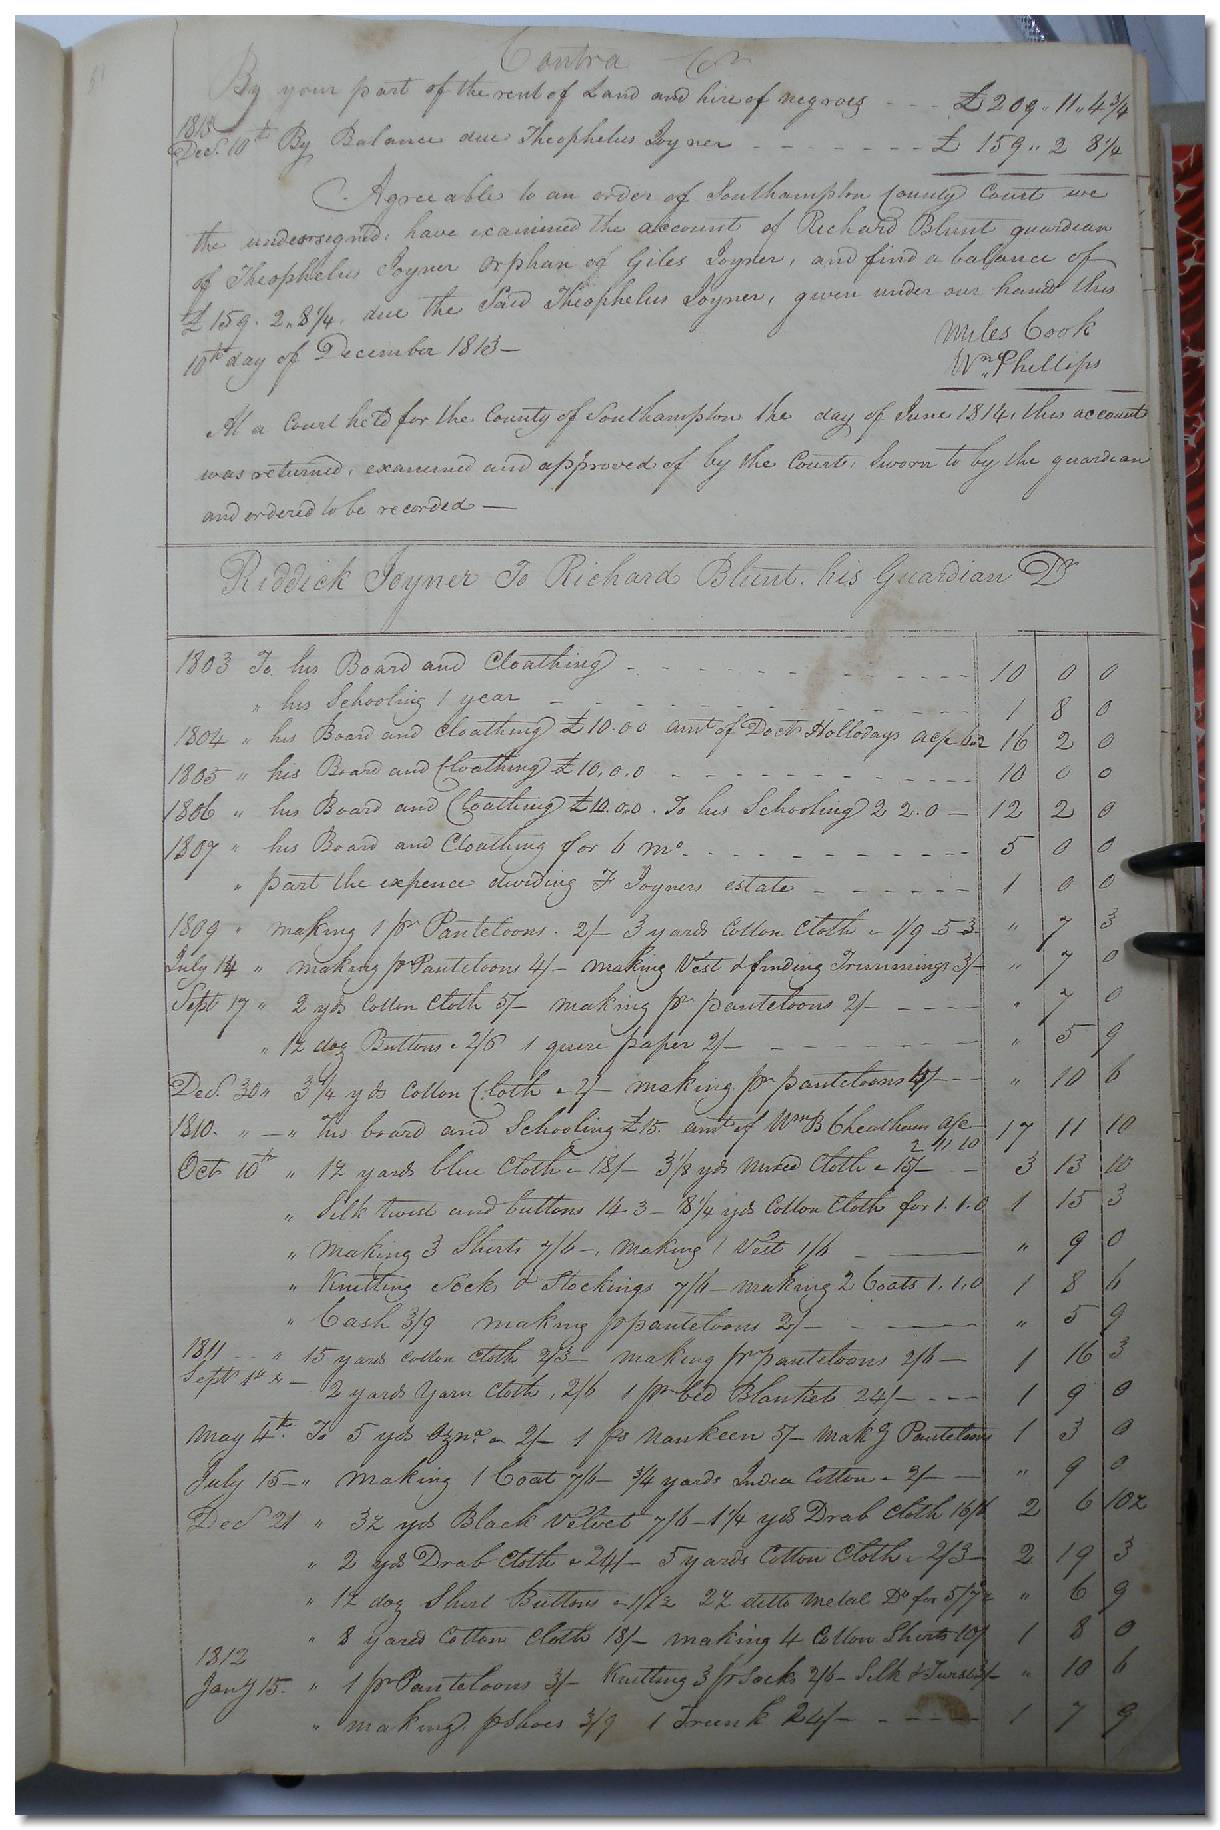 Contra Cr
By your part of the rent of Land and hire of negroes - - - £ 209 „ 11 „ 4 3/4
1813
Decr. 10th By Balance due Theophelus Joyner - - - - - - - £ 159 „ 2 8 1/4
Agreeable to an order of Southampton County Court we
the undersigned, have examined the account of Richard Blunt guardian
of Theophelus Joyner orphan of Giles Joyner, and find a balance of
£ 159. 2 „ 8 1/4. due the Said Theophelus Joyner, given under our hands this
10th day of December 1813 —
Miles Cook
Wm. Phillips
At a Court held for the County of Southampton the day of June 1814, this account
was returned, examined and approved of by the Court, Sworn to by the guardian
and ordered to be recorded —
Riddick Joyner To Richard Blunt. his Guardian Dr
1803 To his Board and Cloathing - - - - - - 10 0 0
„ his Schooling 1 year - - - - - - 1 8 0
1804 „ his Board and Cloathing £10.0.0 amt of Doctr Hollodays acpt 16 2 0
1805 „ his Board and Cloathing £10.0.0 - - - - - 10 0 0
1806 „ his Board and Cloathing £10.0.0. To his Schooling 2 2.0 — 12 2 0
1807 „ his Board and Cloathing for 6 mo. - - - - - 5 0 0
„ part the expence dividing F Joyners estate - - - - - 1 0 0
1809 „ making 1 pr Panteloons. 2/– 3 yards Cotton Cloth a 1/9 5 3 „ 7 3
July 14 „ making pr Panteloons 4/– making Vest & finding Trimmings 3/– „ 7 0
Sept 17 „ 2 yds Cotton Cloth 5/– making pr panteloons 2/– - - - - „ 7 0
„ 1½ doz Buttons a 2/6 1 quire paper 2/– - - - - - „ 5 9
Decr. 30 „ 3 1/4 yds Cotton Cloth a 2/– making pr panteloons 4/– - - „ 10 6
1810. „ — „ his board and Schooling £15. amt of Wm B Cheatham a/c 2 11 10 17 11 10
Oct 10th „ 1½ yards blue Cloth a 18/– 3 1/8 yds mixed Cloth a 15/– - - 3 13 10
„ Silk twist and buttons 14.3 – 8 1/4 yds Cotton Cloth for 1.1.0 1 15 3
„ making 3 Shirts 7/6 –, making 1 Vest 1/6 - — „ 9 0
„ Knitting Socks & Stockings 7/6 – making 2 Coats 1.1.0 1 8 6
„ Cash 3/9 making pr panteloons 2/– - — „ 5 9
1811 - - „ 15 yards cotton Cloth 2/3 – making pr panteloons 2/6 — 1 16 3
Sept 1st „ — 2 yards Yarn Cloth, 2/6 1 pr bed Blankets 24/– - - - 1 9 0
May 4th. To 5 yds Ozng a 2/– 1 ps Nankeen 5/– Makg Panteloons 1 3 0
July 15 – „ making 1 Coat 7/6 – 3/4 yards India Cotton a 2/– — „ 9 0
Decr 21 „ 3½ yds Black Velvet 7/6 – 1 1/4 yds Drab Cloth 16/6 2 6 10½
„ 2 yds Drab Cloth a 24/– 5 yards Cotton Cloth a 2/3 – 2 19 3
„ 1½ doz Shirt Buttons a 1/1½ 2½ ditto metal Do for 5/7½ „ 6 9
„ 8 yards Cotton Cloth 18/– making 4 Cotton Shirts 10/ 1 8 0
1812
Jany 15. „ 1 pr Panteloons 3/– Knitting 3 pr Socks 2/6 – Silk & 3/– „ 10 6
„ making. pr Shoes 3/9 1 Trunk 24/– - - - - 1 7 9